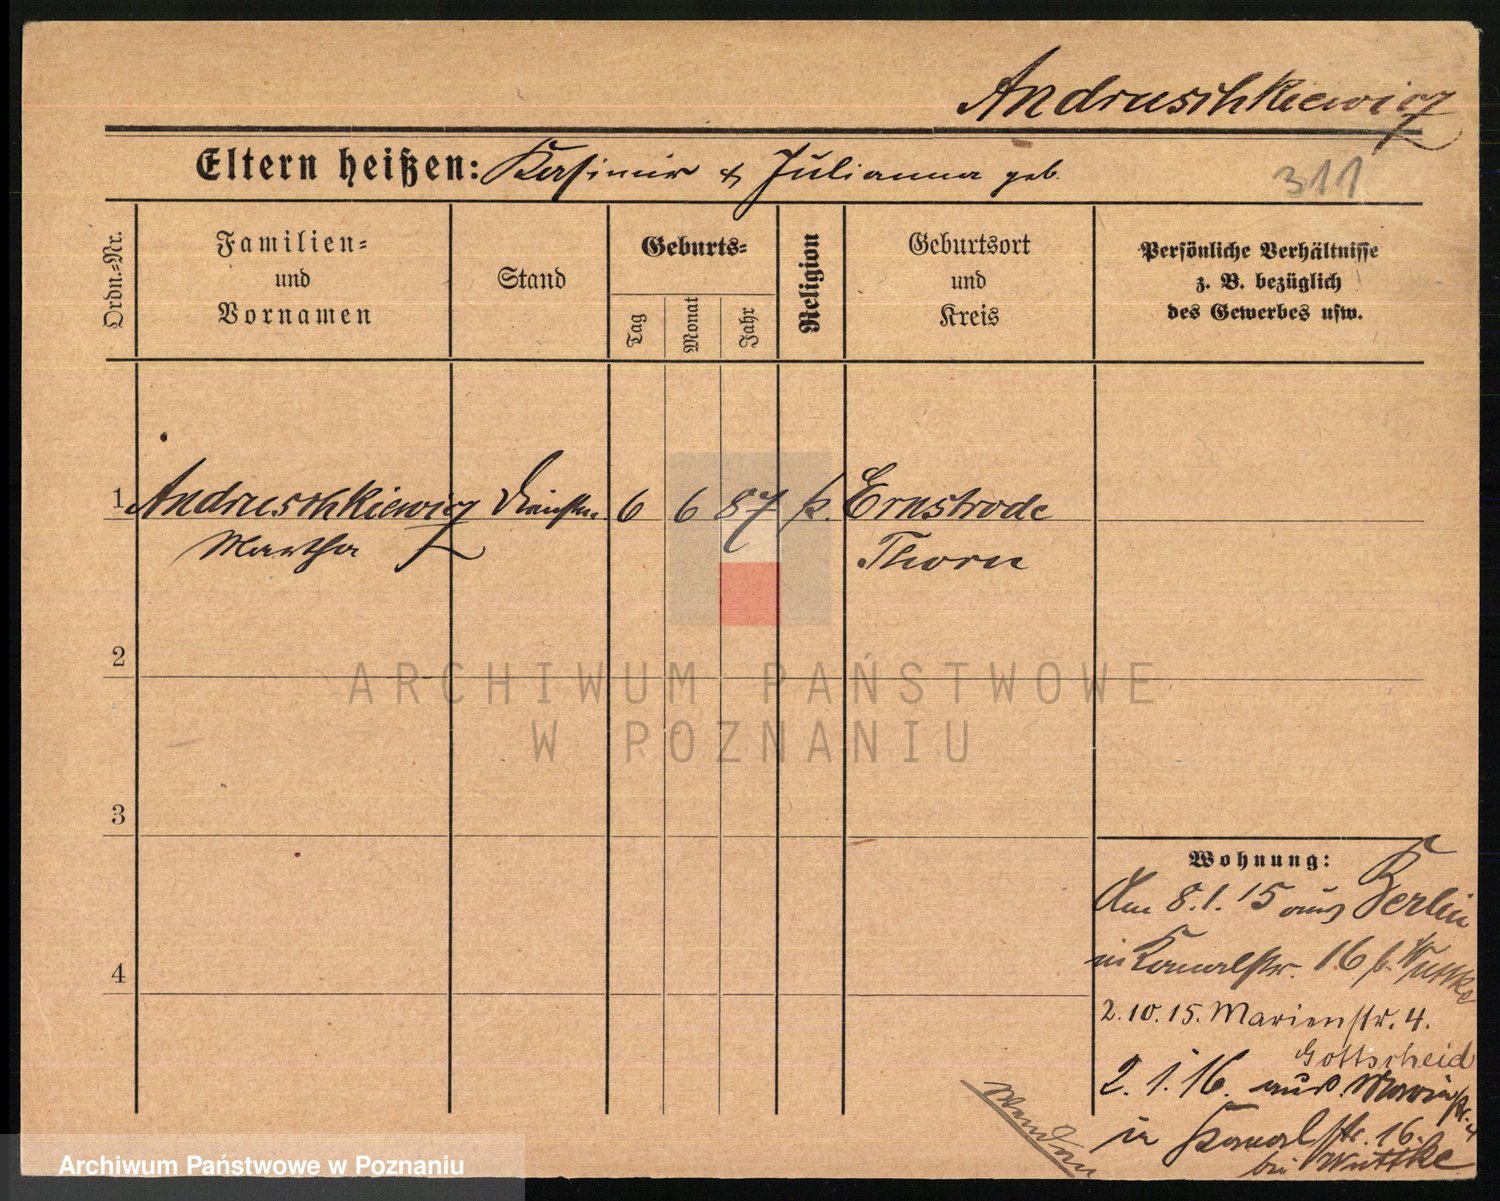 Andruschkiewicz
Eltern heißen: Kasimir & Julianna geb.
311
Ordn.=Nr.
Familien=
und
Vornamen
Stand
Geburts=
Tag
Monat
Jahr
Religion
Geburtsort
und
Kreis
Persönliche Verhältnisse
z. B. bezüglich
des Gewerbes usw.
1 Andruschkiewicz 6 6 87 k. Ernstrode
Martha Thorn
2
ARCHIWUM PAŃSTWOWE
W POZNANIU
3
4
Wohnung:
Am 8.1.15 aus Berlin
in Kanalstr. 16 b. Wuttke
2.10.15. Marienstr. 4.
Gottscheid
2.1.16. aus Marienstr. 4
in Kanalstr. 16.
bei Wuttke
Wenden
Archiwum Państwowe w Poznaniu